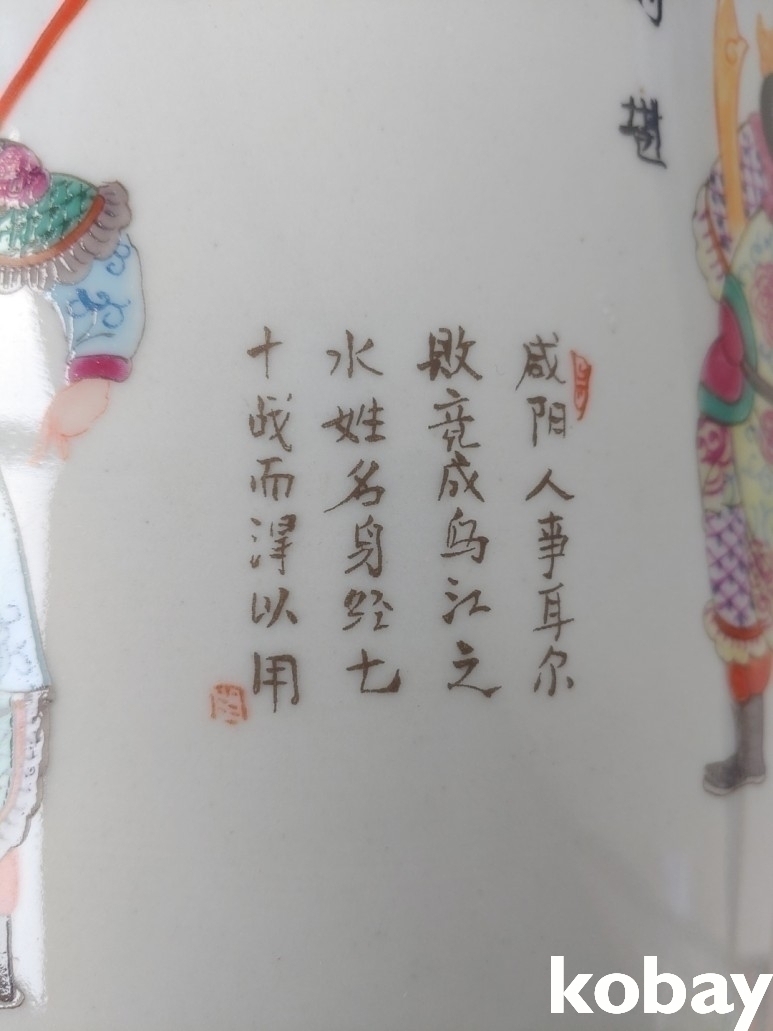 咸阳人事耳尔
败竟成乌江之
水姓名身经七
十战而泽以用
kobay